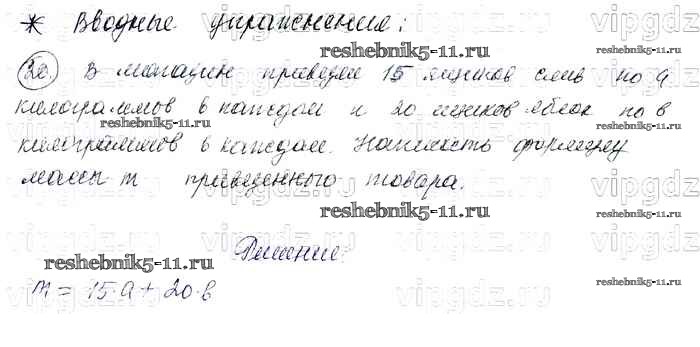 * Вводные упражнения:
20. В магазин привезли 15 ящиков слив по а
килограммов в каждом и 20 ящиков яблок по в
килограммов в каждом. Написать формулу
массы m привезенного товара.
Решение:
m = 15·a + 20·в
vipgdz.ru
reshebnik5-11.ru
reshebnik5-11.ru
vipgdz.ru
reshebnik5-11.ru
reshebnik5-11.ru
vipgdz.ru
reshebnik5-11.ru
vipgdz.ru
reshebnik5-11.ru
reshebnik5-11.ru
vipgdz.ru